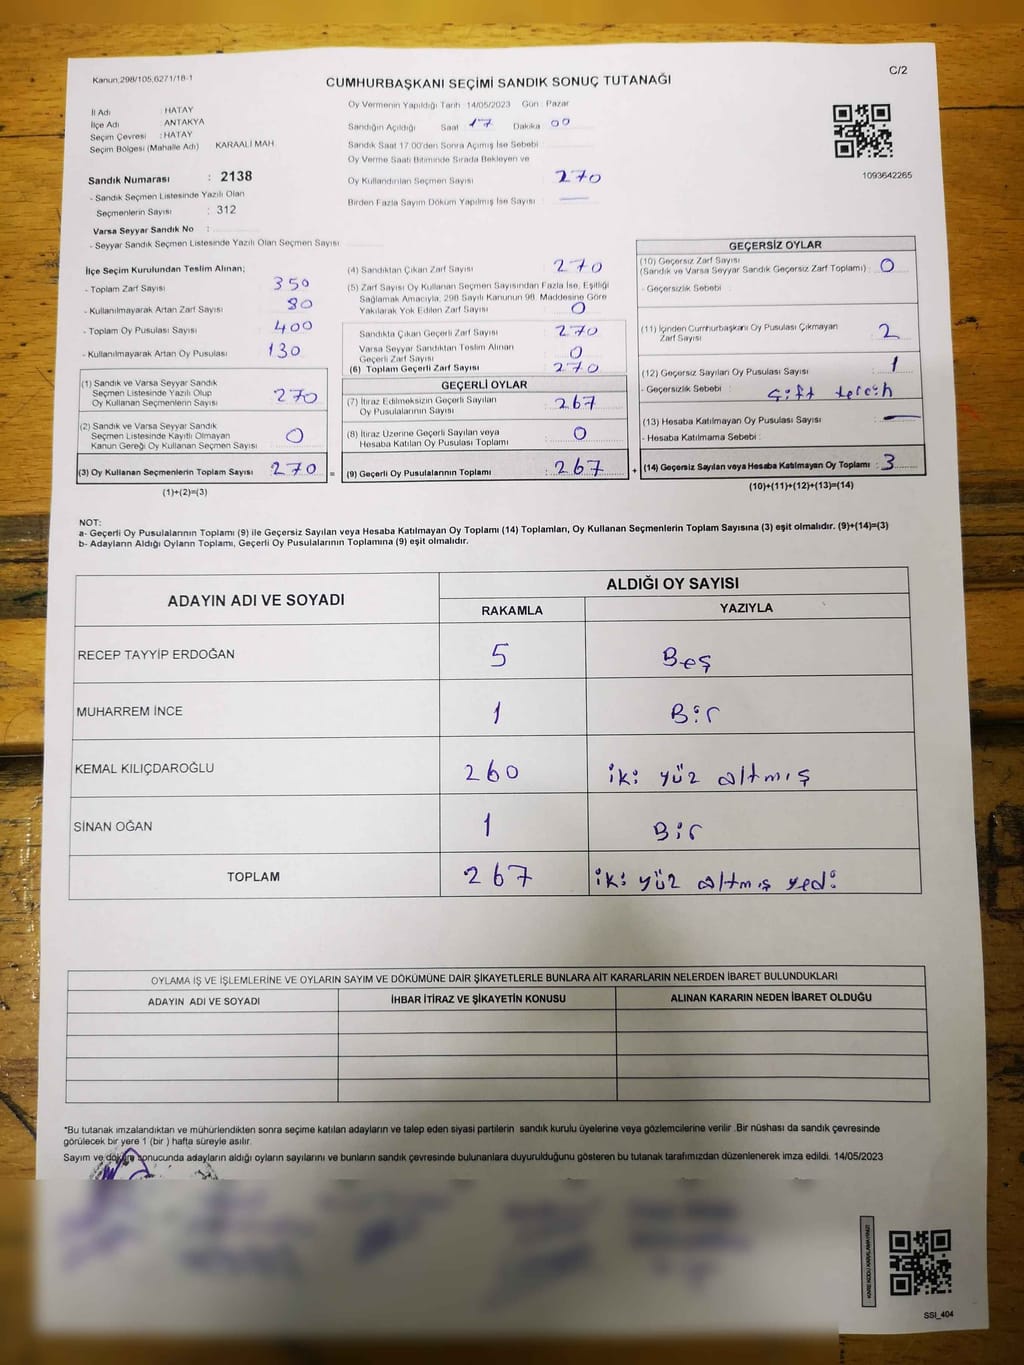 Kanun,298/105,6271/18-1
C/2
CUMHURBAŞKANI SEÇİMİ SANDIK SONUÇ TUTANAĞI
İl Adı : HATAY
İlçe Adı : ANTAKYA
Seçim Çevresi : HATAY
Seçim Bölgesi (Mahalle Adı) KARAALİ MAH.
Sandık Numarası : 2138
- Sandık Seçmen Listesinde Yazılı Olan
Seçmenlerin Sayısı : 312
Varsa Seyyar Sandık No :
- Seyyar Sandık Seçmen Listesinde Yazılı Olan Seçmen Sayısı
Oy Vermenin Yapıldığı Tarih 14/05/2023 Gün : Pazar
Sandığın Açıldığı Saat 17 Dakika 00
Sandık Saat 17:00'den Sonra Açımış İse Sebebi
Oy Verme Saati Bitiminde Sırada Bekleyen ve
Oy Kullandırılan Seçmen Sayısı : 270
Birden Fazla Sayım Döküm Yapılmış İse Sayısı : —
1093642265
İlçe Seçim Kurulundan Teslim Alınan;
- Toplam Zarf Sayısı 350
- Kullanılmayarak Artan Zarf Sayısı 80
- Toplam Oy Pusulası Sayısı 400
- Kullanılmayarak Artan Oy Pusulası 130
(1) Sandık ve Varsa Seyyar Sandık
Seçmen Listesinde Yazılı Olup
Oy Kullanan Seçmenlerin Sayısı 270
(2) Sandık ve Varsa Seyyar Sandık
Seçmen Listesinde Kayıtlı Olmayan
Kanun Gereği Oy Kullanan Seçmen Sayısı 0
(3) Oy Kullanan Seçmenlerin Toplam Sayısı 270 =
(1)+(2)=(3)
(4) Sandıktan Çıkan Zarf Sayısı 270
(5) Zarf Sayısı Oy Kullanan Seçmen Sayısından Fazla İse, Eşitliği
Sağlamak Amacıyla, 298 Sayılı Kanunun 98. Maddesine Göre
Yakılarak Yok Edilen Zarf Sayısı 0
Sandıkta Çıkan Geçerli Zarf Sayısı 270
Varsa Seyyar Sandıktan Teslim Alınan
Geçerli Zarf Sayısı 0
(6) Toplam Geçerli Zarf Sayısı 270
GEÇERLİ OYLAR
(7) İtiraz Edilmeksizin Geçerli Sayılan
Oy Pusulalarının Sayısı : 267
(8) İtiraz Üzerine Geçerli Sayılan veya
Hesaba Katılan Oy Pusulası Toplamı : 0
(9) Geçerli Oy Pusulalarının Toplamı : 267 +
GEÇERSİZ OYLAR
(10) Geçersiz Zarf Sayısı
(Sandık ve Varsa Seyyar Sandık Geçersiz Zarf Toplamı) : 0
- Geçersizlik Sebebi :
(11) İçinden Cumhurbaşkanı Oy Pusulası Çıkmayan
Zarf Sayısı 2
(12) Geçersiz Sayılan Oy Pusulası Sayısı : 1
- Geçersizlik Sebebi : çift tercih
(13) Hesaba Katılmayan Oy Pusulası Sayısı : —
- Hesaba Katılmama Sebebi :
(14) Geçersiz Sayılan veya Hesaba Katılmayan Oy Toplamı : 3
(10)+(11)+(12)+(13)=(14)
NOT:
a- Geçerli Oy Pusulalarının Toplamı (9) ile Geçersiz Sayılan veya Hesaba Katılmayan Oy Toplamı (14) Toplamları, Oy Kullanan Seçmenlerin Toplam Sayısına (3) eşit olmalıdır. (9)+(14)=(3)
b- Adayların Aldığı Oyların Toplamı, Geçerli Oy Pusulalarının Toplamına (9) eşit olmalıdır.
ADAYIN ADI VE SOYADI
ALDIĞI OY SAYISI
RAKAMLA YAZIYLA
RECEP TAYYİP ERDOĞAN 5 Beş
MUHARREM İNCE 1 Bir
KEMAL KILIÇDAROĞLU 260 iki yüz altmış
SİNAN OĞAN 1 Bir
TOPLAM 267 iki yüz altmış yedi
OYLAMA İŞ VE İŞLEMLERİNE VE OYLARIN SAYIM VE DÖKÜMÜNE DAİR ŞİKAYETLERLE BUNLARA AİT KARARLARIN NELERDEN İBARET BULUNDUKLARI
ADAYIN ADI VE SOYADI İHBAR İTİRAZ VE ŞİKAYETİN KONUSU ALINAN KARARIN NEDEN İBARET OLDUĞU
*Bu tutanak imzalandıktan ve mühürlendikten sonra seçime katılan adayların ve talep eden siyasi partilerin sandık kurulu üyelerine veya gözlemcilerine verilir .Bir nüshası da sandık çevresinde
görülecek bir yere 1 (bir ) hafta süreyle asılır.
Sayım ve döküm sonucunda adayların aldığı oyların sayılarını ve bunların sandık çevresinde bulunanlara duyurulduğunu gösteren bu tutanak tarafımızdan düzenlenerek imza edildi. 14/05/2023
SSI_404